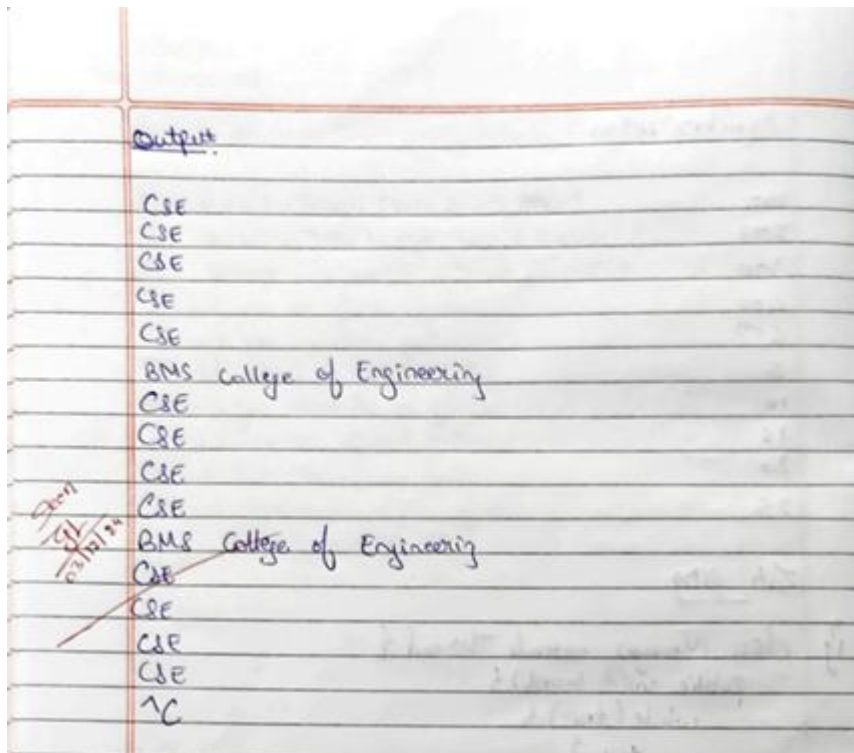 Output:
CSE
CSE
CSE
CSE
CSE
BMS College of Engineering
CSE
CSE
CSE
CSE
BMS College of Engineerig
CSE
CSE
CSE
CSE
^C
Seen
03/12/24